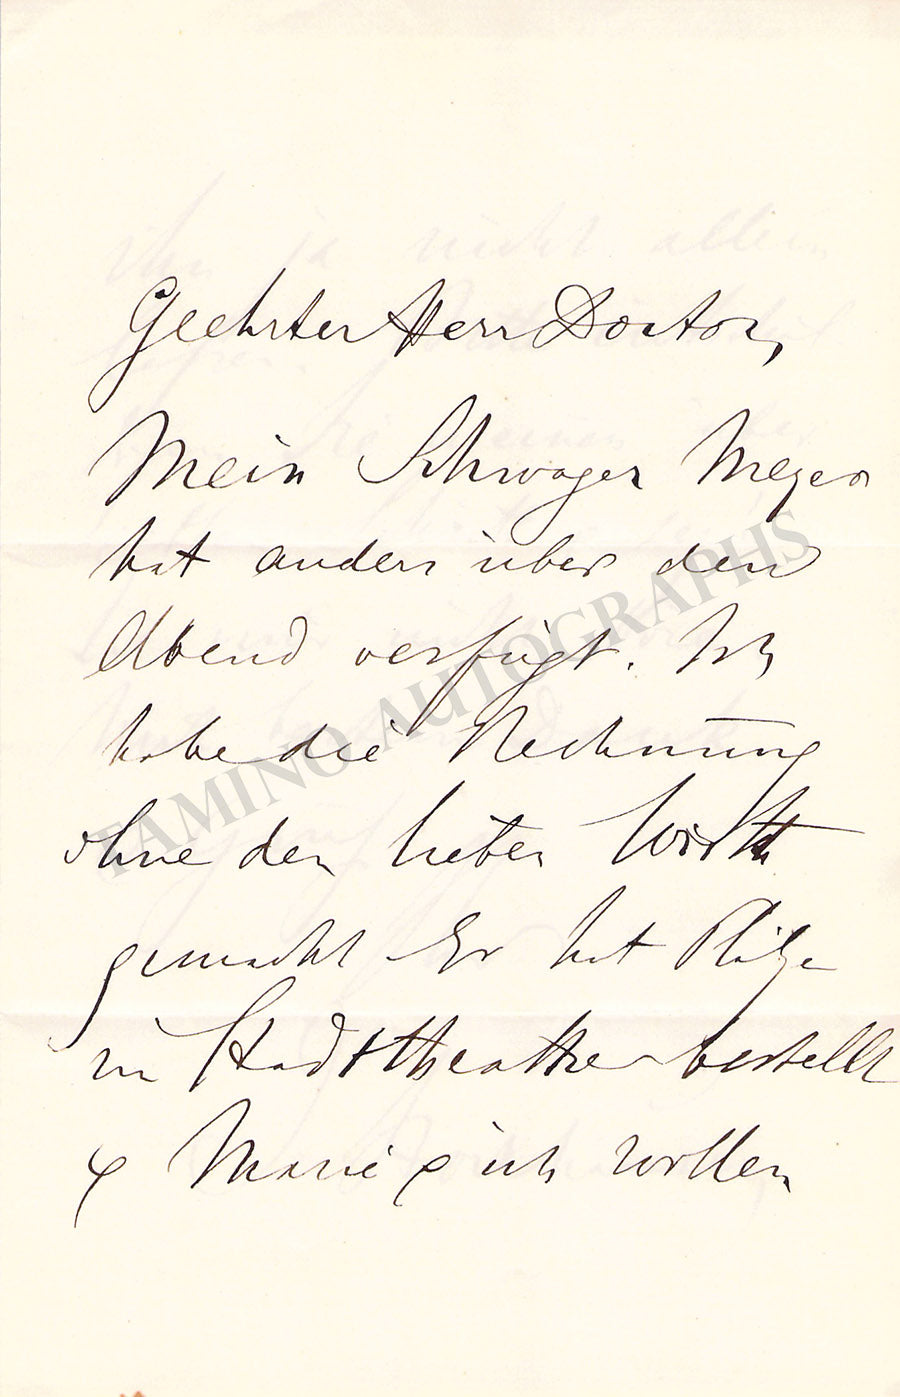 Geehrter Herr Doctor,
Mein Schwager Meyer
hat anders über den
Abend verfügt. Ich
habe die Rechnung
ohne den lieben Wirth
gemacht Er hat Plätze
im Stadttheather bestellt
& Marie & ich wollen
TAMINO AUTOGRAPHS